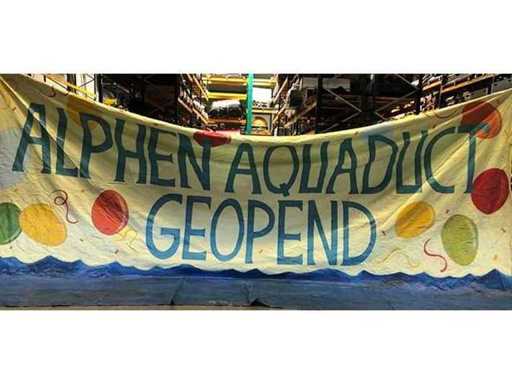 ALPHEN AQUADUCT
GEOPEND